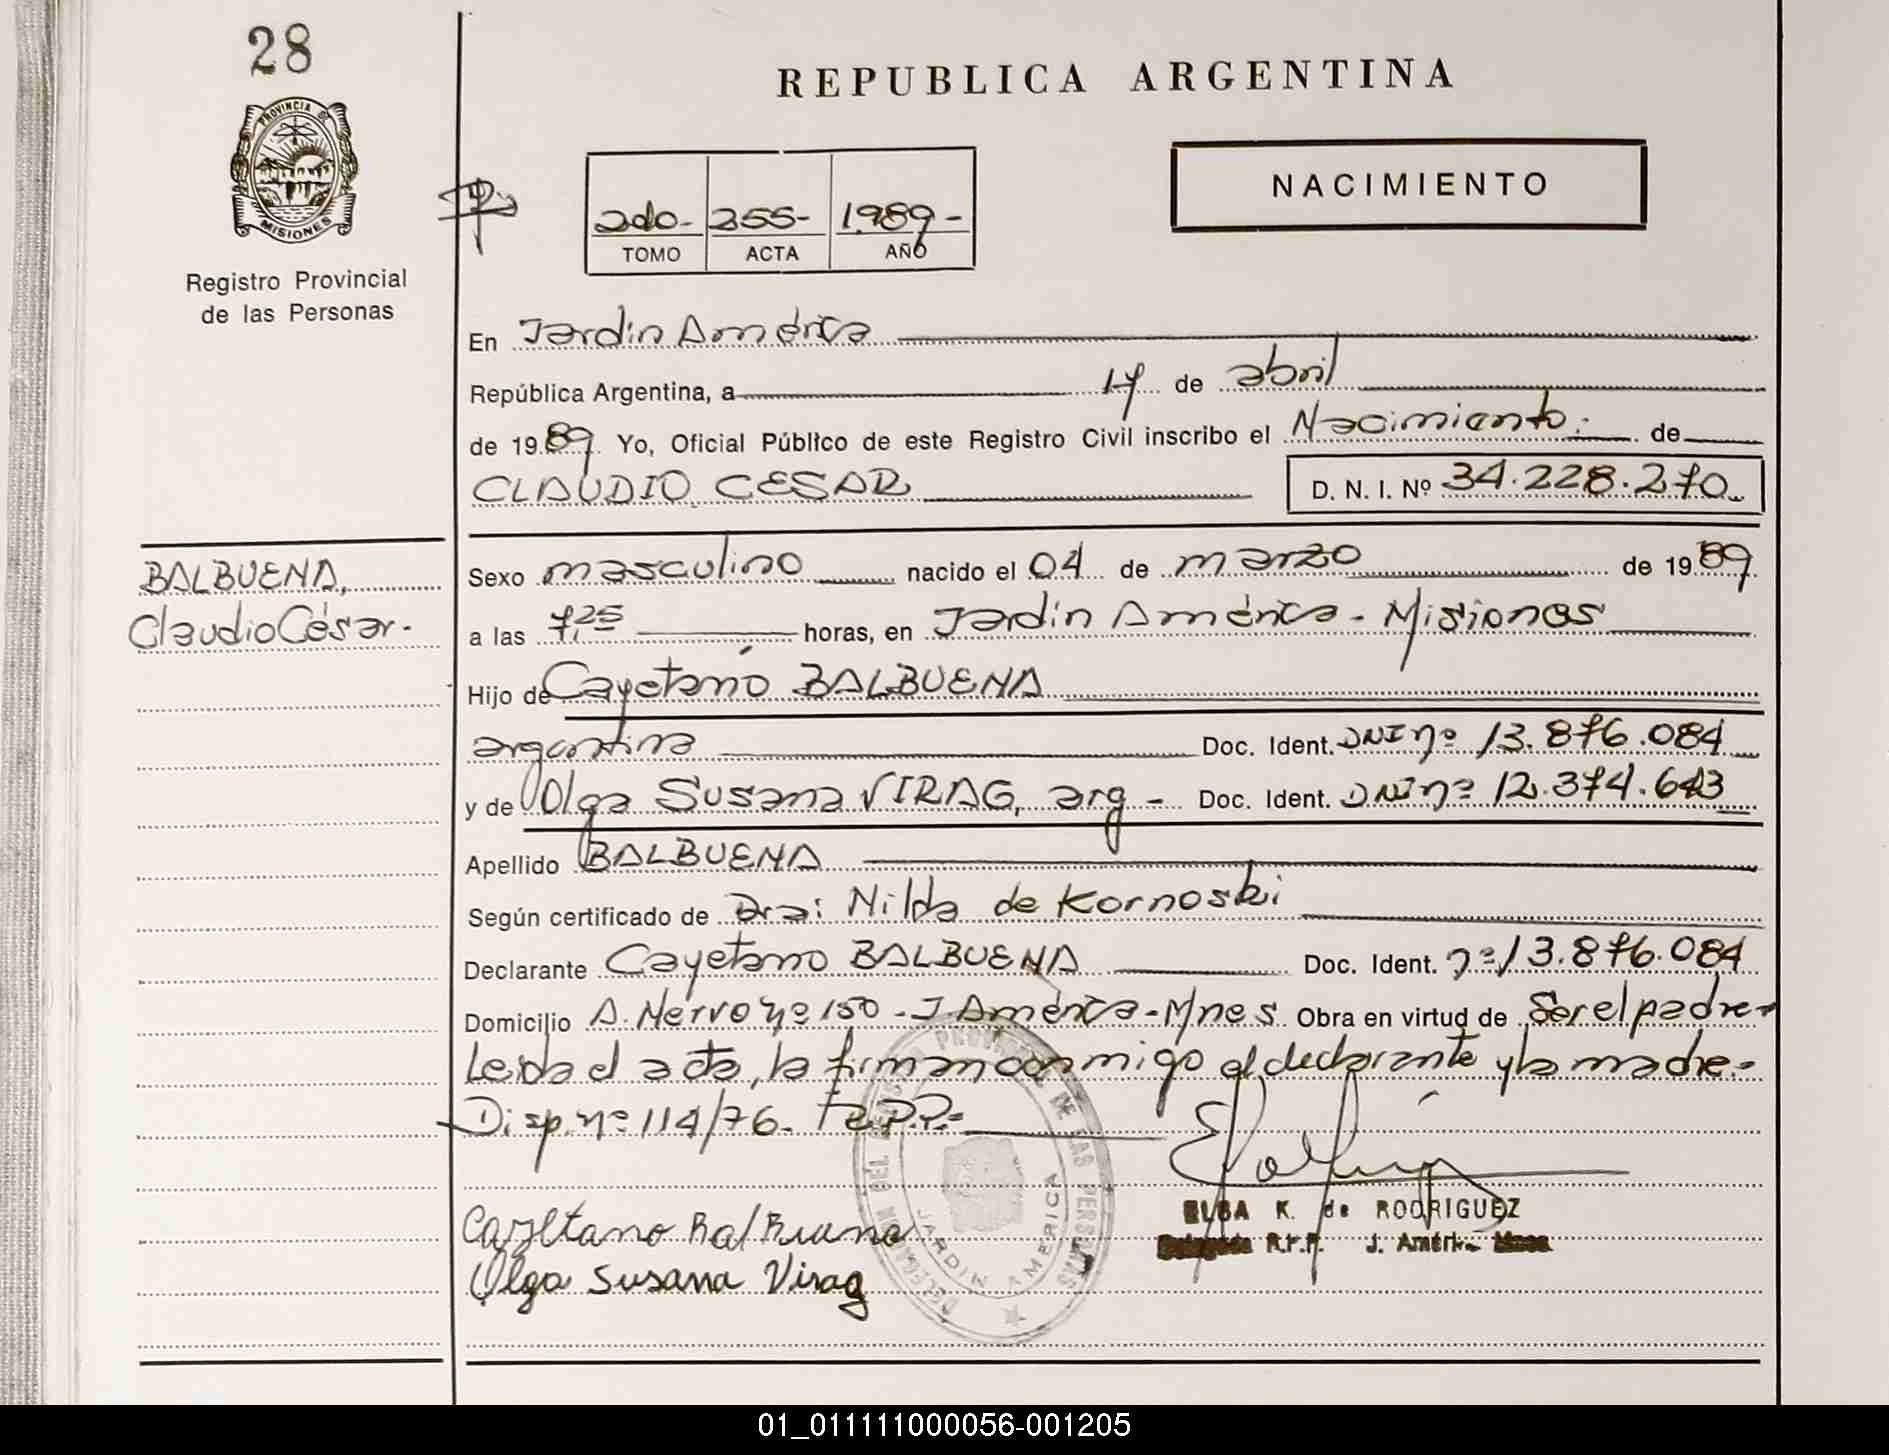 28
REPUBLICA ARGENTINA
PROVINCIA DE
MISIONES
Registro Provincial
de las Personas
NACIMIENTO
2do.- 255- 1.989-
TOMO ACTA AÑO
En Jardín América
República Argentina, a 17 de abril
de 1989. Yo, Oficial Público de este Registro Civil inscribo el Nacimiento.- de
CLAUDIO CESAR D. N. I. Nº 34.228.270.-
BALBUENA,
Claudio César.
Sexo masculino nacido el 04 de marzo de 1989
a las 7.25 horas, en Jardín América - Misiones
Hijo de Cayetano BALBUENA
argentina Doc. Ident. DNI nº 13.876.084
y de Olga Susana VIRAG, arg - Doc. Ident. DNI nº 12.374.643
Apellido BALBUENA
Según certificado de Dra: Nilda de Kornoski
Declarante Cayetano BALBUENA Doc. Ident. nº 13.876.084
Domicilio A. Nervo nº 150 - J. América - Mnes. Obra en virtud de Ser el padre-
Leida el acta, la firman conmigo el declarante y la madre.-
Disp. nº 114/76. R.P.P.-
Cayetano Balbuena
Olga Susana Virag
ELBA K. de RODRIGUEZ
Delegada R.P.P. J. América Mnes
DELEGACION DEL REGISTRO PROVINCIAL DE LAS PERSONAS
JARDIN AMERICA
01_011111000056-001205